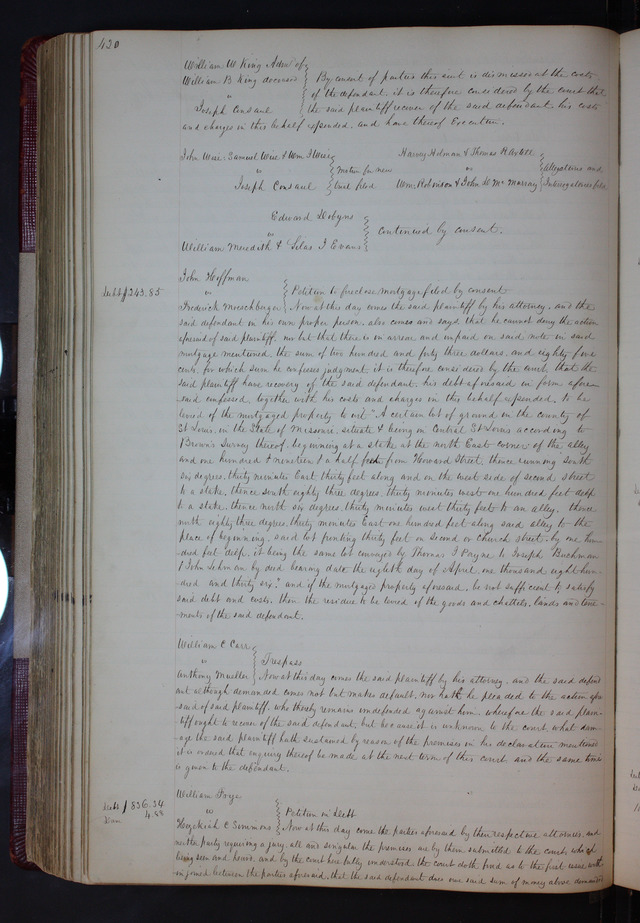 420
William W King Admr of
William B King deceased
vs
Joseph Consaul
By consent of parties this suit is dismissed at the costs
of the defendant. it is therefore considered by the court that
the said plaintiff recover of the said defendant his costs
and charges in this behalf expended. and have thereof Execution.
John Wise. Samuel Wise & Wm Wise
vs
Joseph Consaul
Motion for new
trial filed
Harvey Holman & Thomas H Axtell
vs
Wm Robinson & John W Mc Murray
Allegations and
Interrogatories filed
Edward Dobyns
vs
William Meredith & Silas J Evans
continued by consent.
John Hoffman
vs
Frederick Moeschberger
Debt $243.85
Petition to foreclose mortgage filed by consent
Now at this day comes the said plaintiff by his attorney. and the
said defendant in his own proper person also comes and says that he cannot deny the action
aforesaid of said plaintiff. nor but that there is in arrear and unpaid on said note in said
mortgage mentioned. the sum of two hundred and forty three dollars. and eighty five
cents. for which sum he confesses judgment. it is therefore considered by the court that the
said plaintiff have recovery of the said defendant. his debt aforesaid in form afore-
said confessed. together with his costs and charges in this behalf expended. to be
levied of the mortgaged property to wit "A certain lot of ground in the county of
St Louis. in the State of Missouri. situate & being in Central St Louis according to
Brown's Survey thereof. beginning at a stake at the north East corner of the alley
and one hundred & nineteen & a half feet from Howard Street. thence running South
six degrees. thirty minutes East thirty feet along and on the west side of second street
to a stake. thence south eighty three degrees. thirty minutes west one hundred feet deep
to a stake. thence north six degrees. thirty minutes west thirty feet to an alley. thence
north eighty three degrees. thirty minutes East one hundred feet along said alley to the
place of beginning. said lot fronting thirty feet on second or church street. by one hun-
dred feet deep. it being the same lot conveyed by Thomas J Payne to Joseph Buchman
& John Lehman by deed bearing date the eighth day of April one thousand eight hun-
dred and thirty six." and if the mortgaged property aforesaid. be not sufficient to satisfy
said debt and costs. then the residue to be levied of the goods and chattels. lands and tene-
ments of the said defendant.
William C Carr
vs
Anthony Mueller
Trespass
Now at this day comes the said plaintiff by his attorney. and the said defend
ant although demanded comes not but makes default. nor hath he pleaded to the action afore
said of said plaintiff. who thereby remains undefended against him. wherefore the said plain-
tiff ought to recover of the said defendant. but because it is unknown to the court what dam-
age the said plaintiff hath sustained by reason of the premises in his declaration mentioned
it is ordered that enquiry thereof be made at the next term of this court and the same time
is given to the defendant.
William Frye
vs
Hezekiah C Simmons
Debt $836.34
Dam 4.88
Petition in Debt
Now at this day come the parties aforesaid by their respective attornies. and
neither party requiring a jury. all and singular the premises are by them submitted to the court. which
being seen and heard. and by the court here fully understood. the court doth find as to the first issue with
in joined between the parties aforesaid. that the said defendant does owe said sum of money above demanded